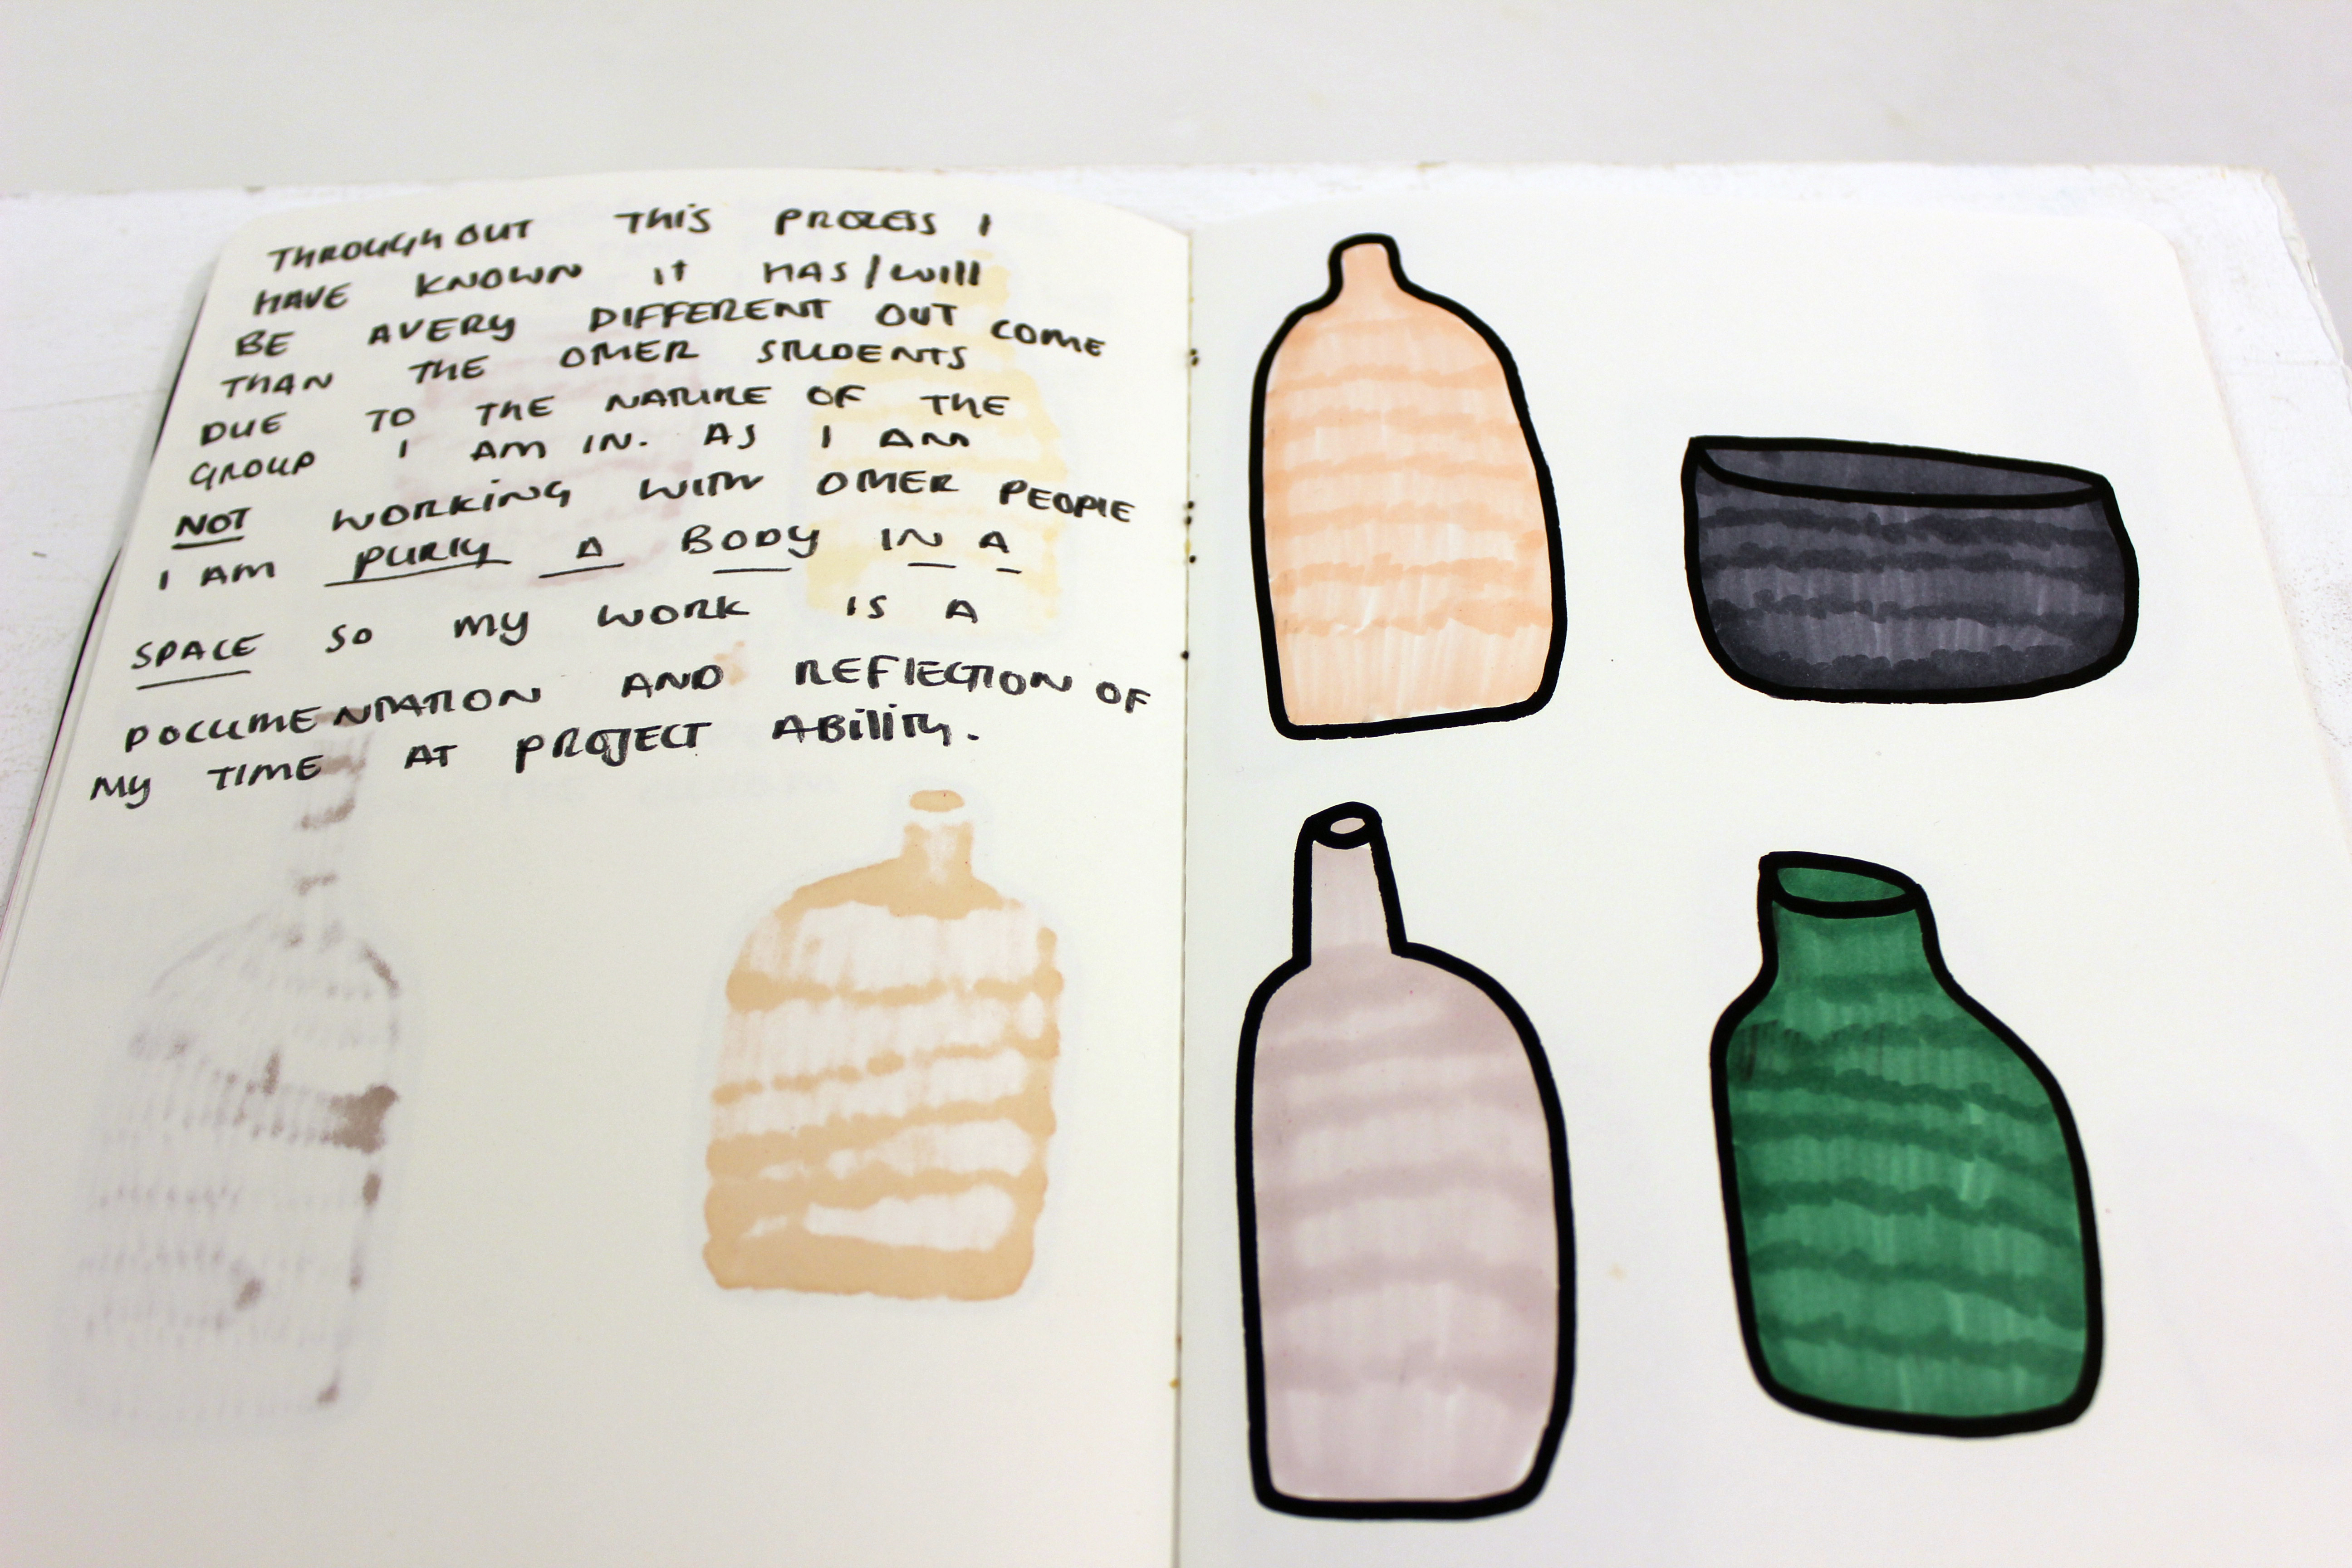 THROUGHOUT THIS PROCESS I
HAVE KNOWN IT HAS/WILL
BE AVERY DIFFERENT OUT COME
THAN THE OTHER STUDENTS
DUE TO THE NATURE OF THE
GROUP I AM IN. AS I AM
NOT WORKING WITH OTHER PEOPLE
I AM PURLY A BODY IN A
SPACE SO MY WORK IS A
DOCUMENTATION AND REFLECTION OF
MY TIME AT PROJECT ABILITY.